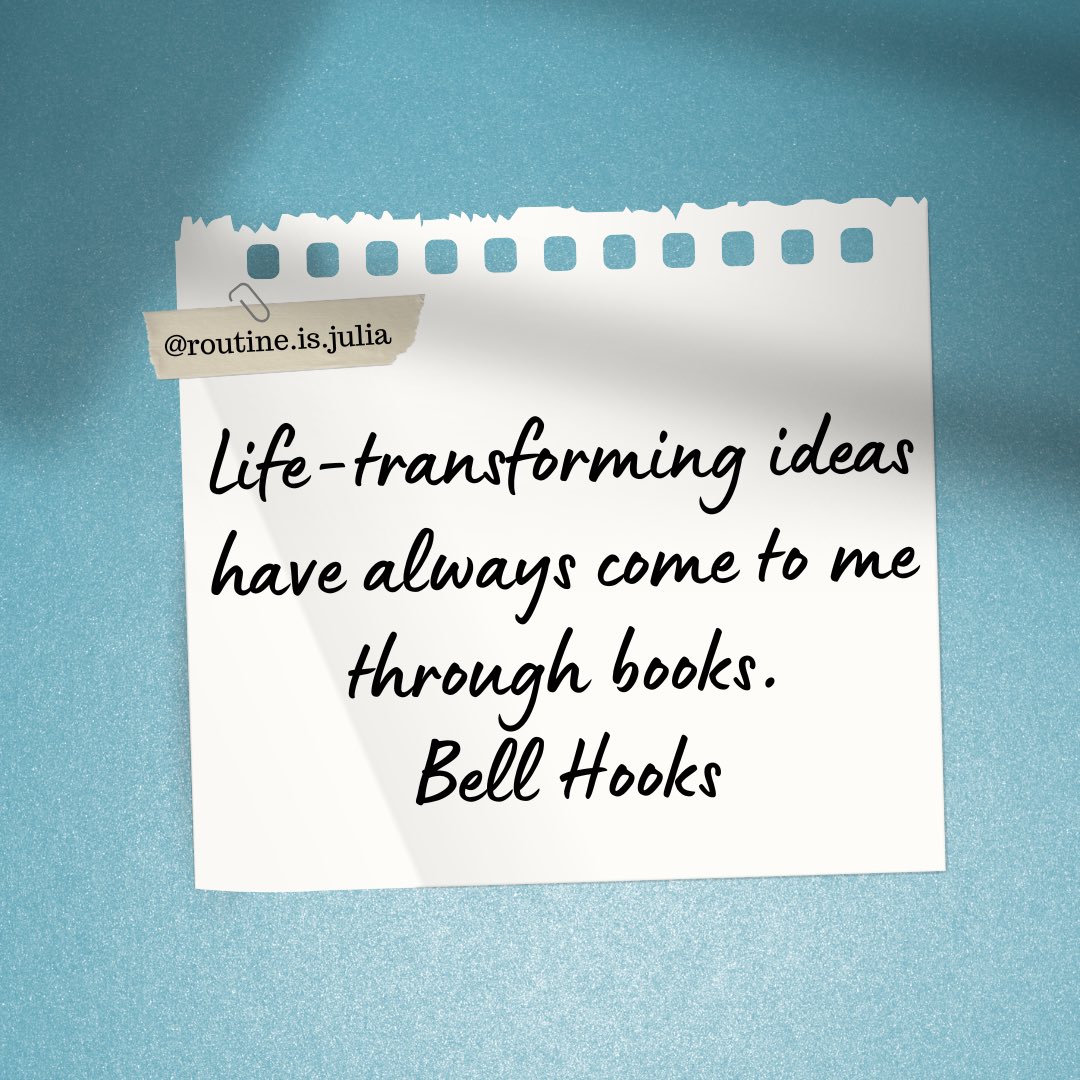 @routine.is.julia
Life-transforming ideas
have always come to me
through books.
Bell Hooks